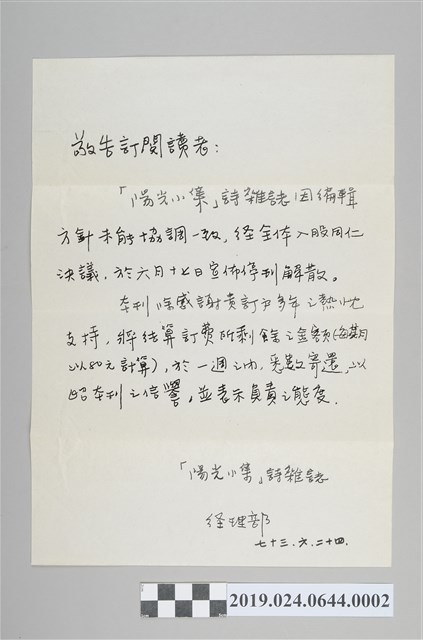 敬告訂閱讀者：
「陽光小集」詩雜誌因編輯
方針未能協調一致，経全体入股同仁
決議，於六月十七日宣佈停刊解散。
本刊除感謝貴訂戶多年之熱忱
支持，將結算訂費所剩餘之金額(每期
以80元計算)，於一週之內，悉數寄還，以
昭本刊之信譽，並表示負責之態度．
「陽光小集」詩雜誌
経理部
七十三．六．二十四．
2019.024.0644.0002